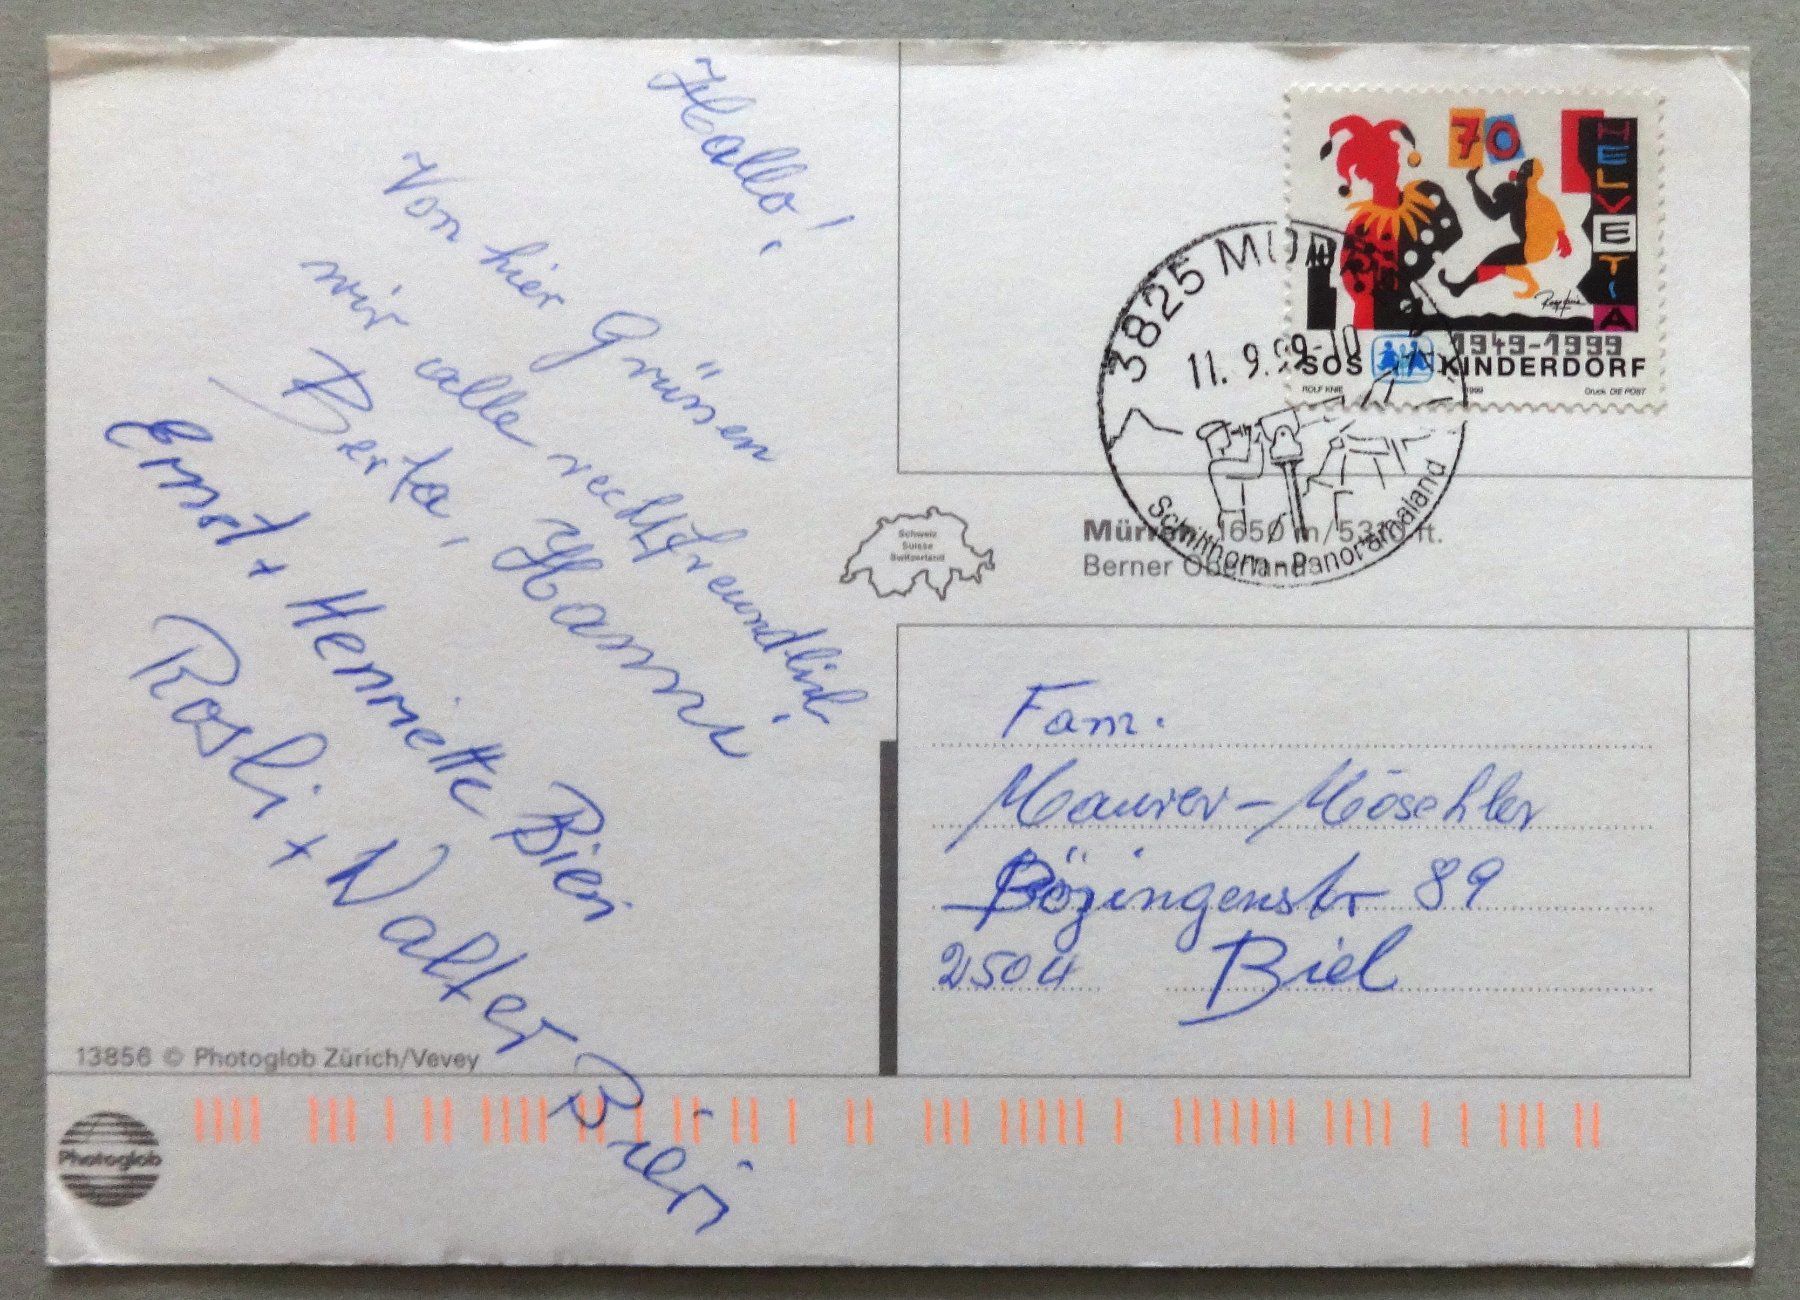 Hallo!
Von hier Grüssen
wir alle recht freundlich
Berta, Hanni
Ernst + Henriette Bieri
Rösli + Walter Bieri
13856 © Photoglob Zürich/Vevey
Photoglob
70
HELVETIA
1949-1999
SOS KINDERDORF
ROLF KNIE
1999
Druck DIE POST
3825 MÜRREN
11.9.99-10
Schilthorn-Panoramaland
Schweiz
Suisse
Switzerland
Mürren, 1650 m/ ft.
Berner Oberland
Fam.
Maurer-Möschler
Bözingenstr 89
2504 Biel